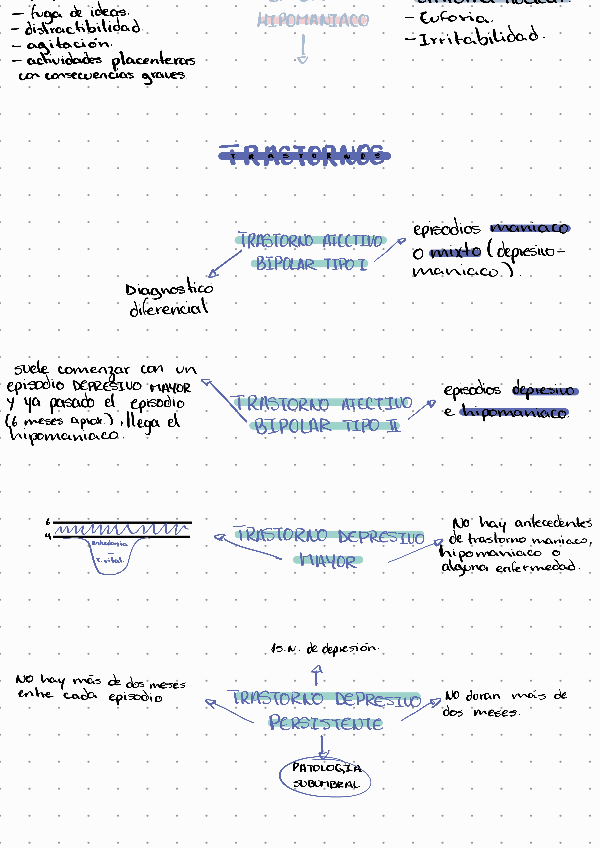 - fuga de ideas.
- distractibilidad
- agitación.
- actividades placenteras
con consecuencias graves
HIPOMANIACO
- Euforia.
- Irritabilidad.
TRASTORNOS
TRASTORNO AFECTIVO
BIPOLAR TIPO I
episodios maniaco
o mixto (depresivo-
maniaco).
Diagnostico
diferencial
suele comenzar con un
episodio DEPRESIVO MAYOR
y ya pasado el episodio
(6 meses aprox.), llega el
hipomaniaco.
TRASTORNO AFECTIVO
BIPOLAR TIPO II
episodios depresivo
e hipomaniaco.
6
4
anhedonia
T. vital.
TRASTORNO DEPRESIVO
MAYOR
No hay antecedentes
de trastorno maniaco,
hipomaniaco o
alguna enfermedad.
de depresión.
No hay más de dos meses
entre cada episodio
TRASTORNO DEPRESIVO
PERSISTENTE
NO duran más de
dos meses.
PATOLOGIA
SUBUMBRAL